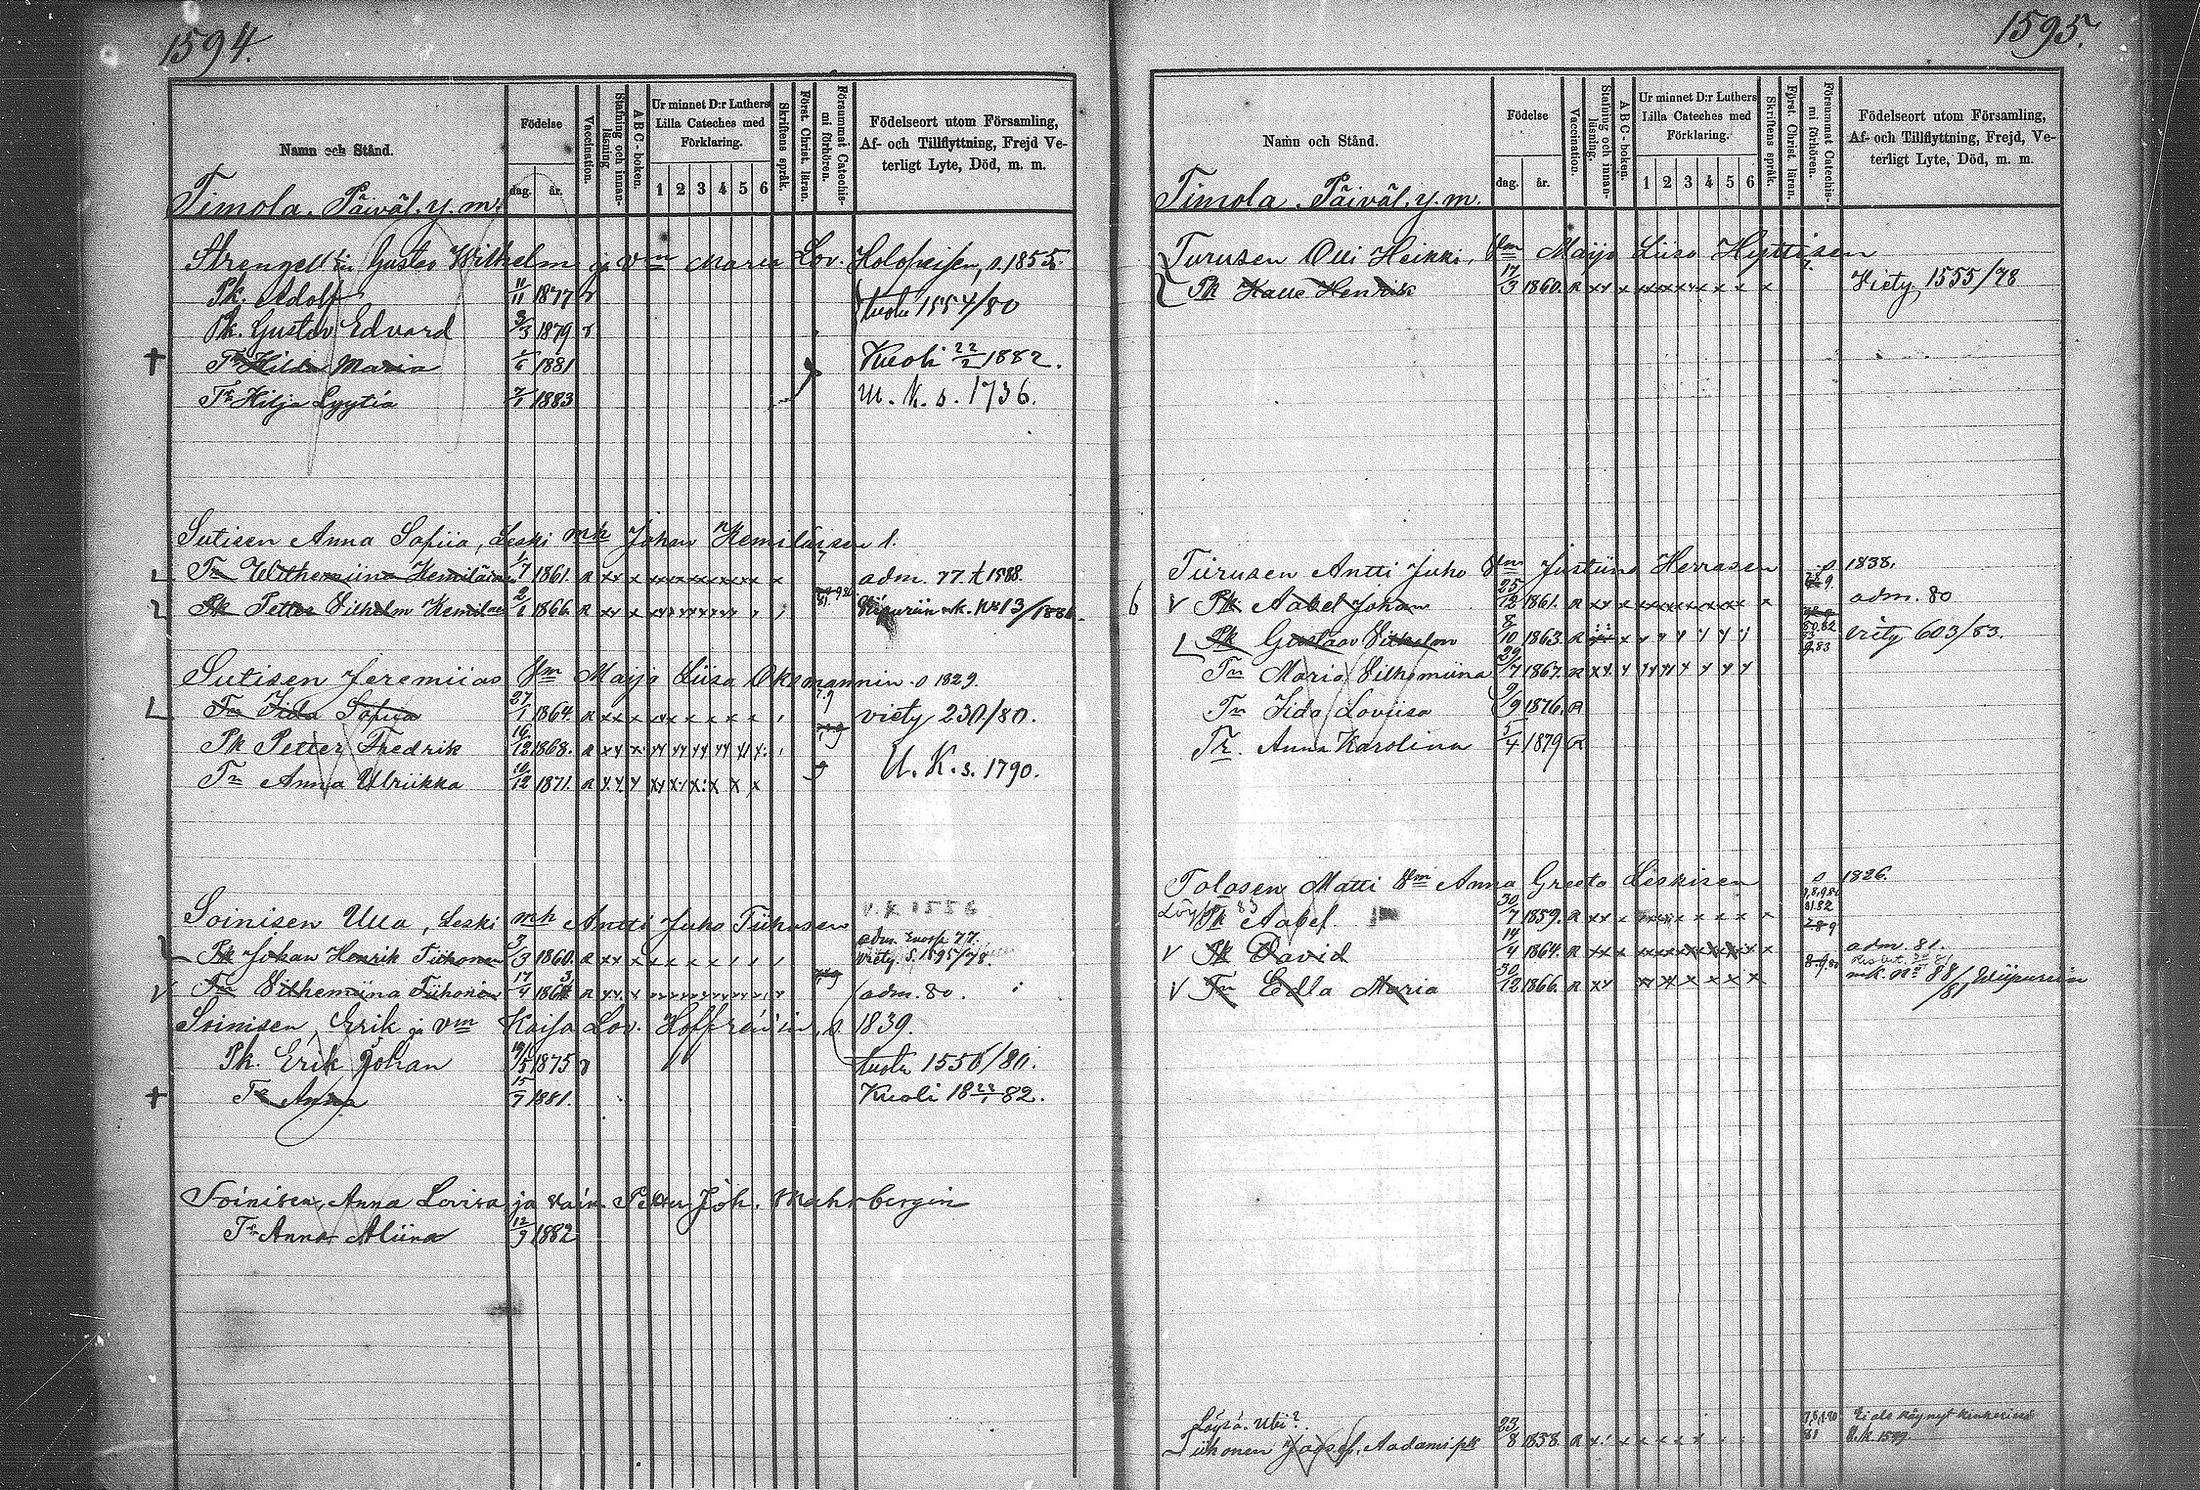 1594.
Namn och Stånd.
Födelse
dag. år.
Vaccination.
Stafning och innanläsning
ABC-boken.
Ur minnet D:r Luthers Lilla Cateches med Förklaring.
1 2 3 4 5 6
Skriftens språk.
Först. Christ. läran.
Försummat Catechismi förhören.
Födelseort utom Församling, Af- och Tillflyttning, Frejd Veterligt Lyte, Död, m. m.
Timola. Päiväl. y. m.
Strengell Gustav Wilhelm ja Vm Maria Lov. Holopeisen, s. 1855.
Pk. Adolf 11/11 1877 r tuotu 1554/80
Pk. Gustav Edvard 3/3 1879 r
† Tr Hilda Maria 1/6 1881 Kuoli 22/2 1882.
Tr Hilja Lyytia 7/1 1883 U. K. s. 1736.
Sutisen Anna Sofiia, Leski mh Johan Kemiläisen
Tr Wilhemiina 1/7 1861. R adm. 77.
Pk Petter Vilhelm 2/1 1866. R
Sutisen Jeremiias Vm Maija Liisa Oksmannin s 1829.
Tr Iida Sofiia 27/1 1864. R viety 230/80.
Pk Petter Fredrik 16/12 1868. R
Tr Anna Ulriikka 10/12 1871. R U. K. s. 1790.
Soinisen Ulla, Leski mh Antti Juho Tiihosen U. K 1556
Pk Johan Henrik Tiihonen 3/3 1860. R viety s. 1595/78.
Tr Vilhemiina Tiihonen 17/4 R adm. 80.
Soinisen, Erik ja Vm Kaisa Lov. s. 1839.
Pk. Erik Johan 1875 r tuotu 1556/80.
† Tr Anna 15/7 1881. Kuoli 18 22/1 82.
Soinisen, Anna Lovisa ja vain. Petter Joh. Mahrbergin
Tr Anna Aliina 12/9 1882
1595.
Namn och Stånd.
Födelse
dag. år.
Vaccination.
Stafning och innanläsning.
ABC-boken.
Ur minnet D:r Luthers Lilla Cateches med Förklaring.
1 2 3 4 5 6
Skriftens språk.
Först. Christ. läran.
Försummat Catechismi förhören.
Födelseort utom Församling, Af- och Tillflyttning, Frejd, Veterligt Lyte, Död, m. m.
Timola. Päiväl. y. m.
Turusen Olli Heikki, Vm Maija Liisa Hyttisen
Pk Kalle Henrik 17/3 1860. R Viety 1555/78
Turusen Antti Juho Vm Justiina Herrasen s 1838.
6 V Pk Aabel Johan 25/12 1861. R adm. 80
Pk Gustaav Vilhelm 8/10 1863. R viety 603/83.
Tr Maria Vilhemiina 29/7 1867. R
Tr Iida Loviisa 9/9 1876. R
Tr. Anna Karolina 5/4 1879 R
Tolosen Matti Vm Anna Greeta Leskisen s 1826.
Pk Aabel. 30/7 1859. R
V Pk David 14/4 1864. R adm. 81.
V Tr Edla Maria 30/12 1866. R mk. No 88/81 Wiipuriin
Löysä. Ubi?
Tiihonen Joosef, Aadamin plk 23/8 1858. R Ei ole käynyt kinkerissä
U. K. 1599.